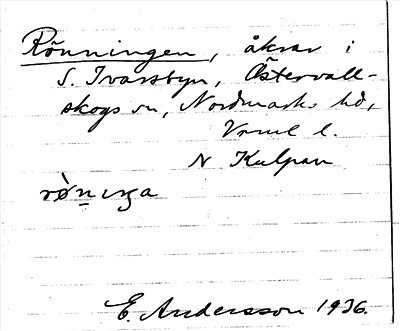 Rönningen, åkrar i
S. Ivarsbyn, Östervall-
skogs sn, Nordmarks hd,
Vrml l.
N Kulpan
E. Andersson 1936.